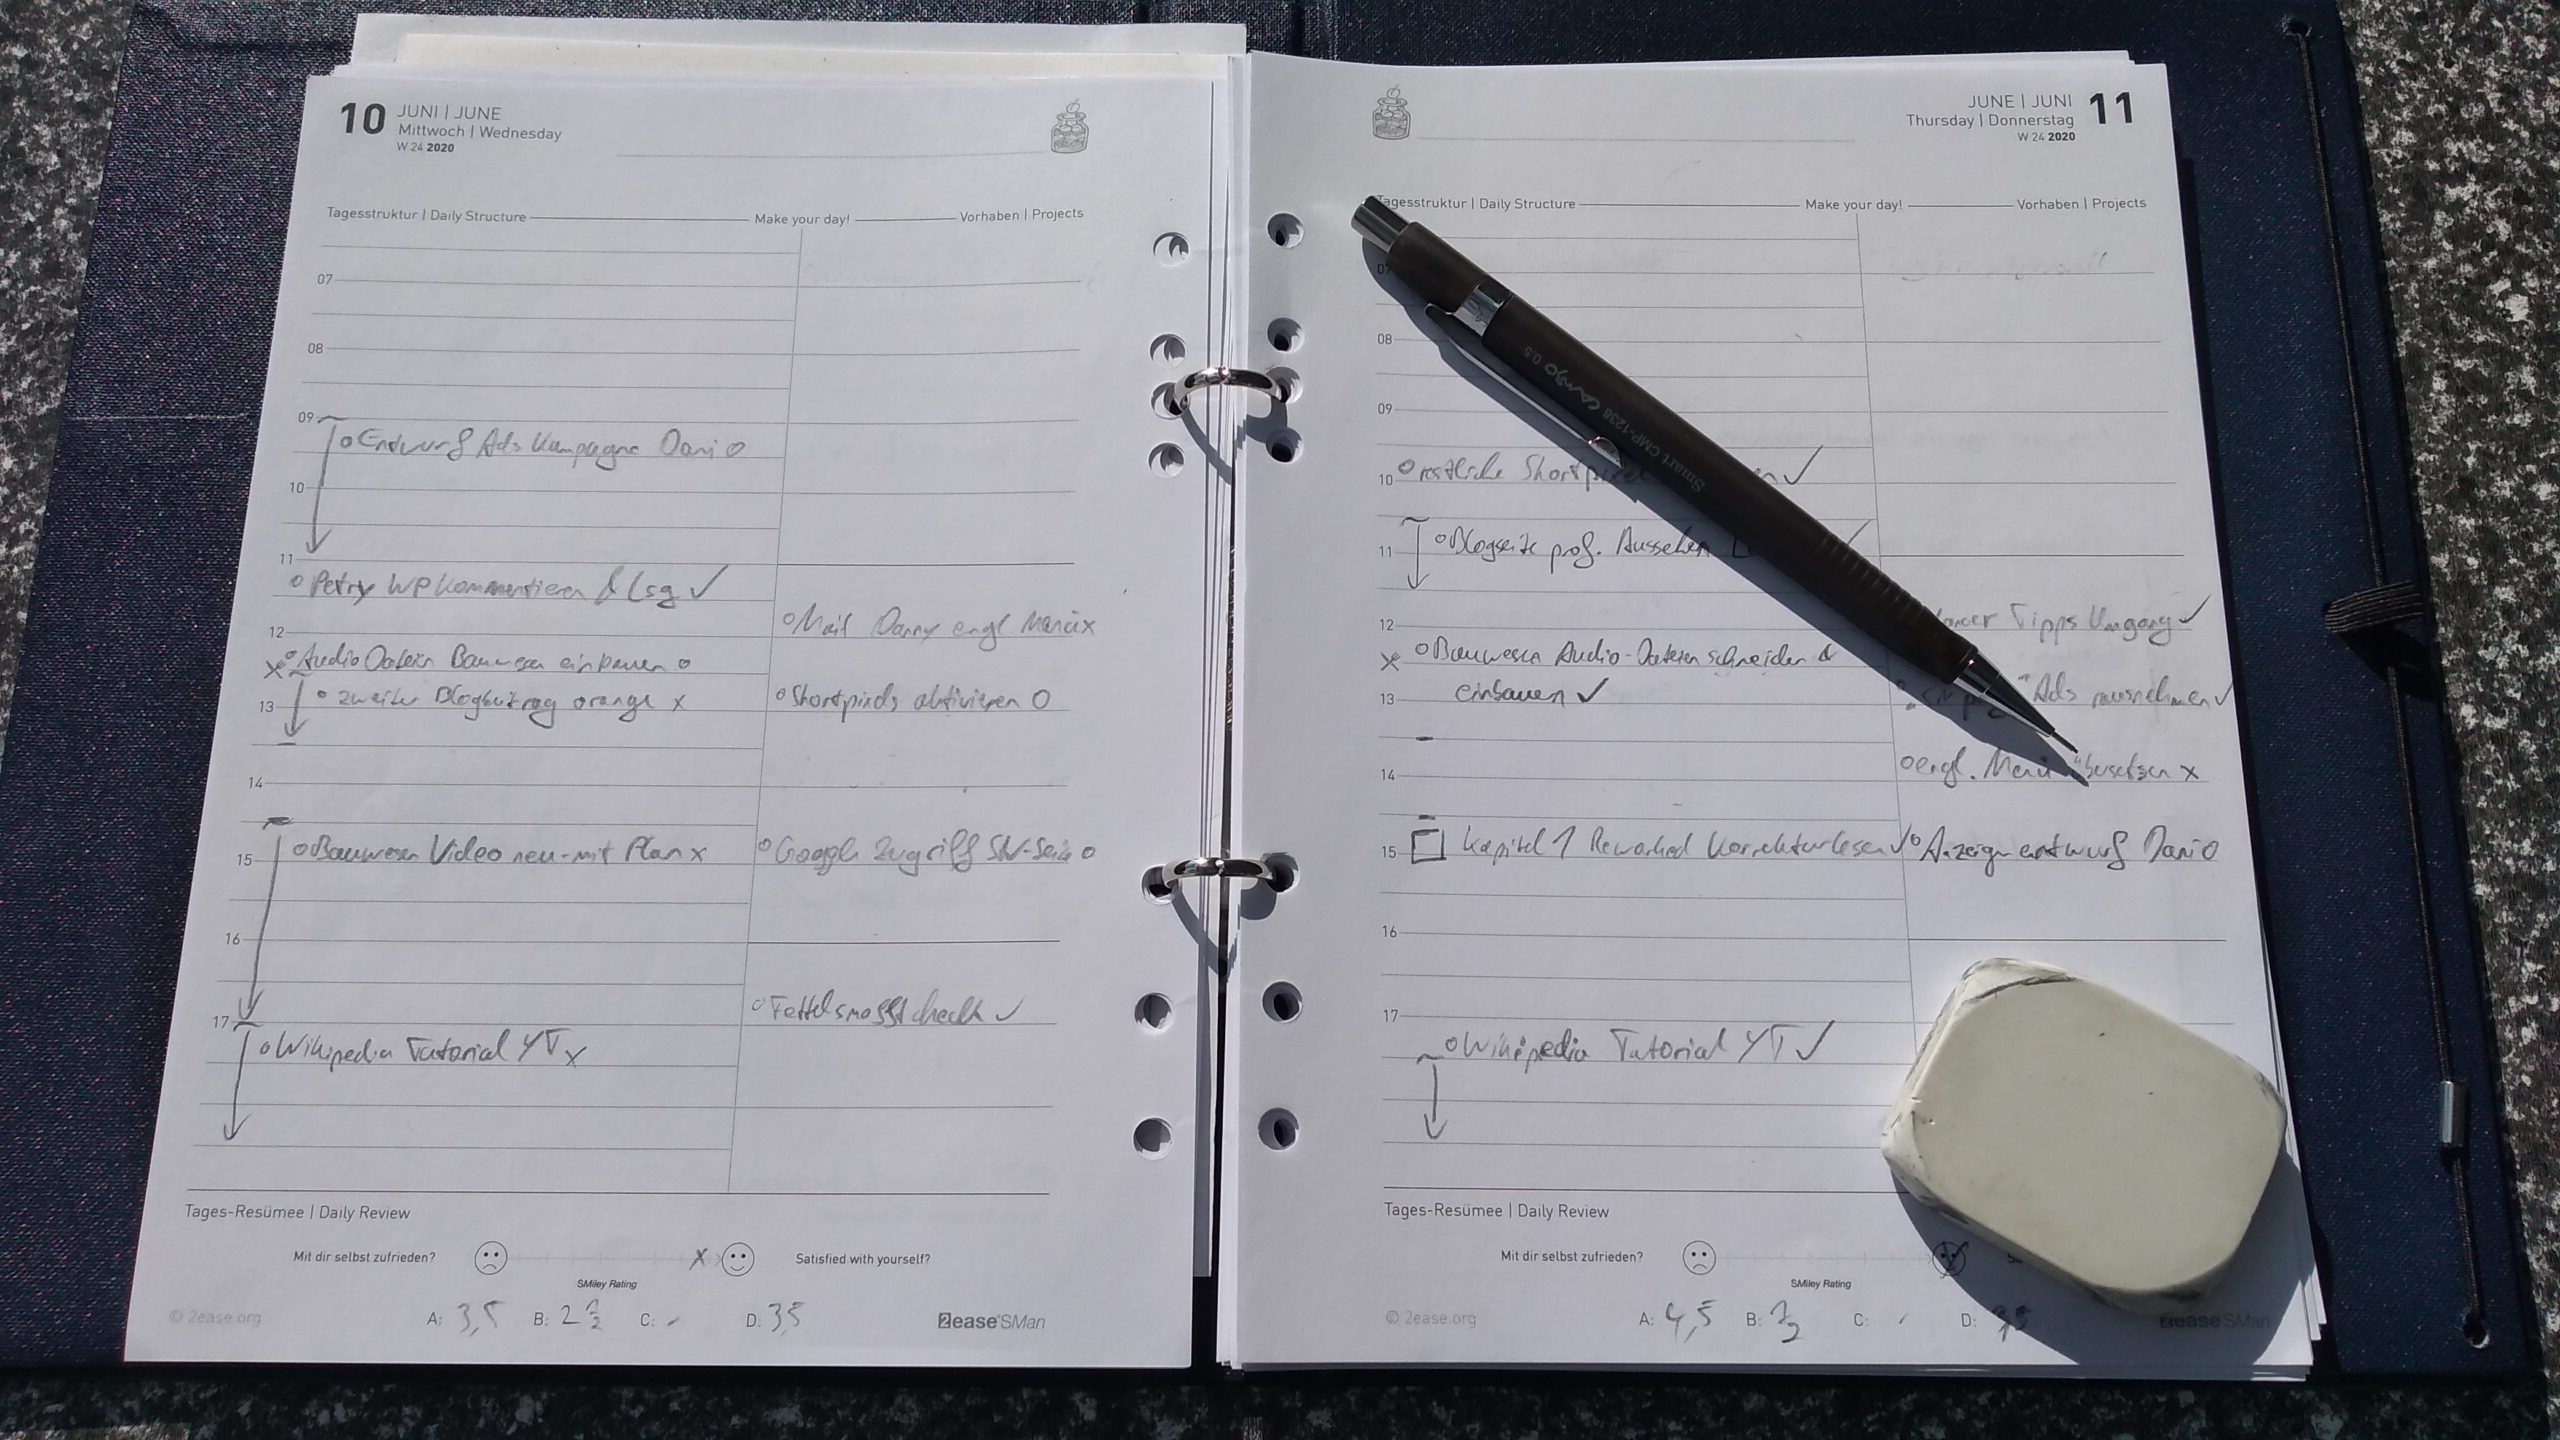 10 JUNI | JUNE
Mittwoch | Wednesday
W 24 2020
Tagesstruktur | Daily Structure Make your day! Vorhaben | Projects
07
08
09
o Entwurf Ads Kampagne Dani o
10
11
o Petry WP kommentieren & Lsg ✓
12
o Mail Danny engl. x
x o Audio Dateien Bauwesen einbauen o
13 o zweiter Blogbeitrag orange x
o Shortpixels aktivieren O
14
15 o Bauwesen Video neu-mit Plan x
o Google Zugriff o
16
17
o check ✓
o Wikipedia Tutorial YT x
Tages-Resümee | Daily Review
Mit dir selbst zufrieden? x Satisfied with yourself?
SMiley Rating
A: 3,5 B: 2 1/2 C: - D: 3,5
© 2ease.org 2ease®SMan
JUNE | JUNI 11
Thursday | Donnerstag
W 24 2020
Tagesstruktur | Daily Structure Make your day! Vorhaben | Projects
07
08
09
10 o restliche ✓
11 o Blogseite prof. Aussehen
12
Tipps Umgang ✓
x o Bauwesen Audio-Dateien schneiden &
13 einbauen ✓
Ads rausnehmen ✓
14
o engl. Menü übersetzen x
15 Kapitel 1 Reworked Korrekturlesen ✓
o Anzeigenentwurf Dani O
16
17
o Wikipedia Tutorial YT ✓
Tages-Resümee | Daily Review
Mit dir selbst zufrieden?
SMiley Rating
A: 4,5 B: 1/2 C: - D:
© 2ease.org 2ease®SMan
Smart GMP-1238 0.5